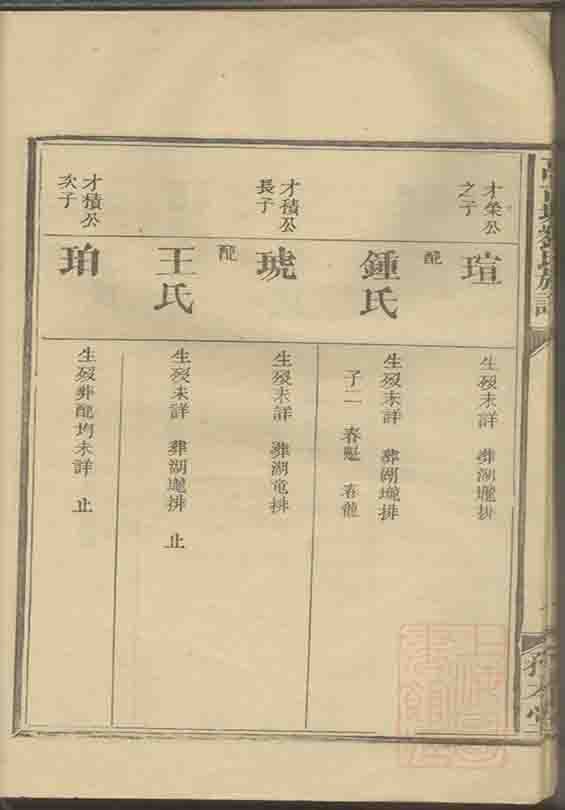 才榮公
之子
瑄
生歿未詳 葬湖壠排
配
鍾氏
生歿未詳 葬湖壠排
子二 春魁 春龍
才積公
長子
琥
生歿未詳 葬湖竜排
配
王氏
生歿未詳 葬湖壠排 止
才積公
次子
珀
生歿葬配均未詳 止